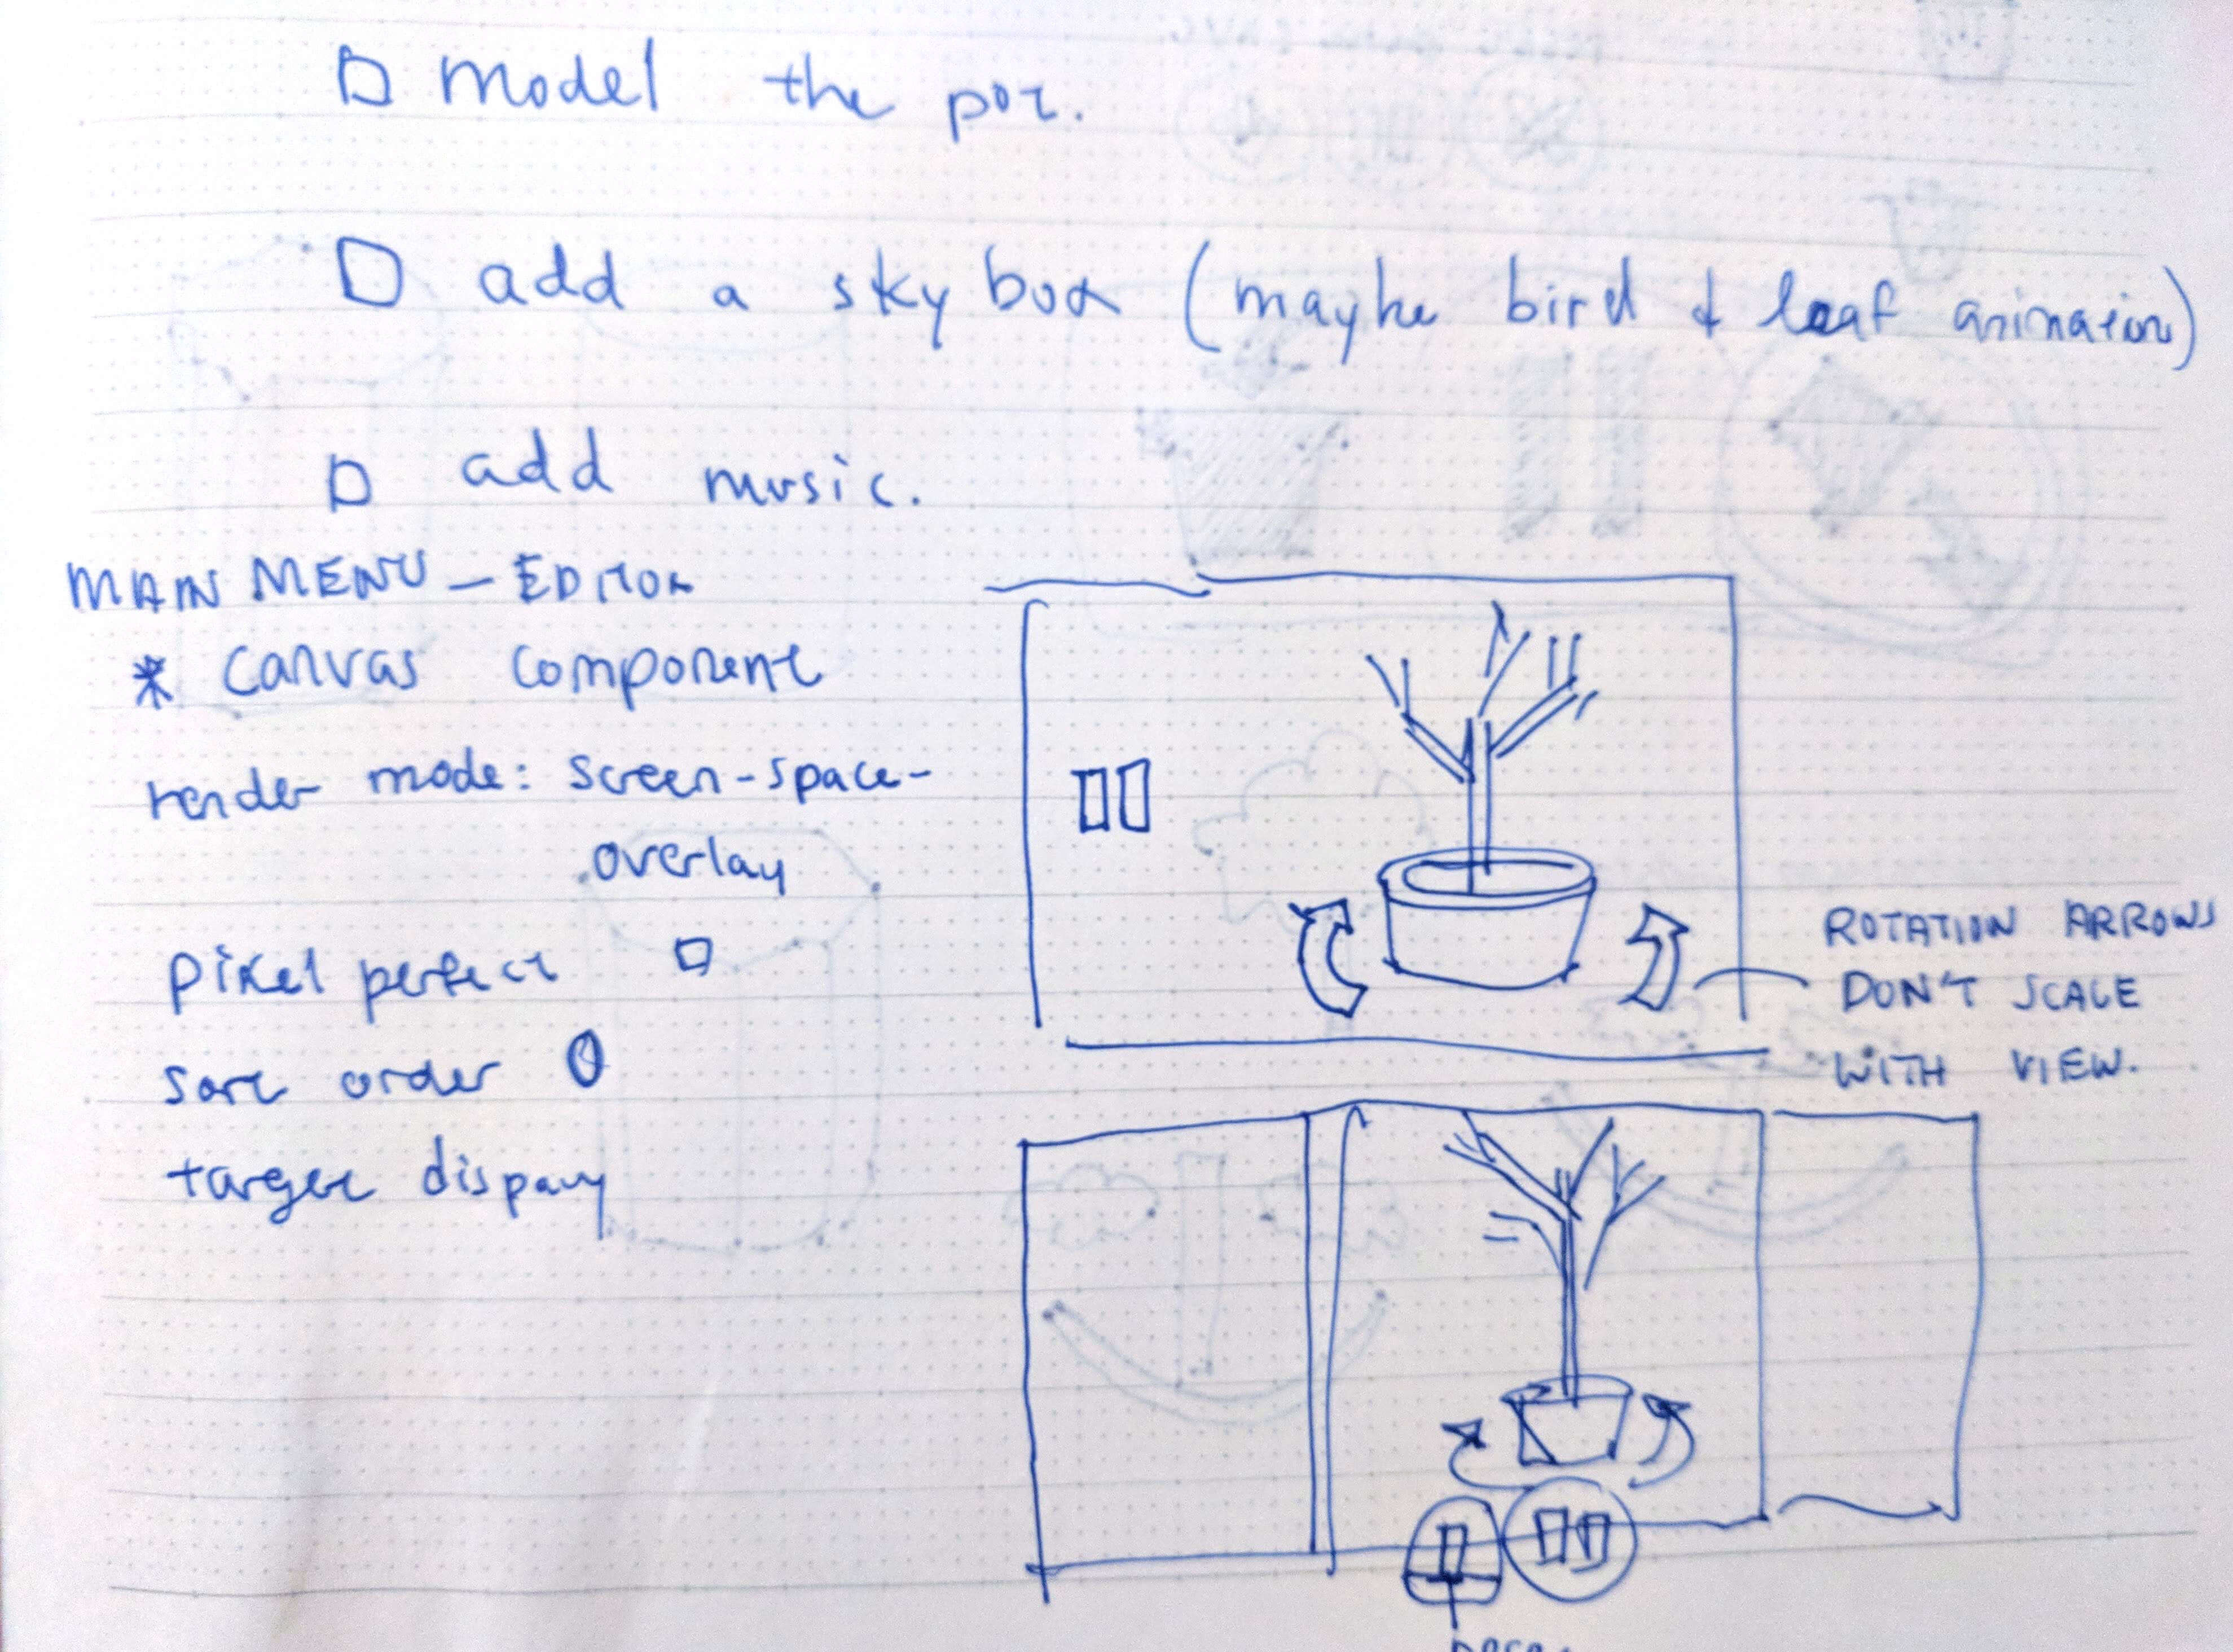 model the pot.
add a sky box (maybe bird & leaf animation)
add music.
MAIN MENU - EDITOR
* Canvas component
render mode: screen-space-
overlay
pixel perfect
sort order 0
target dispay
ROTATION ARROWS
DON'T SCALE
WITH VIEW.